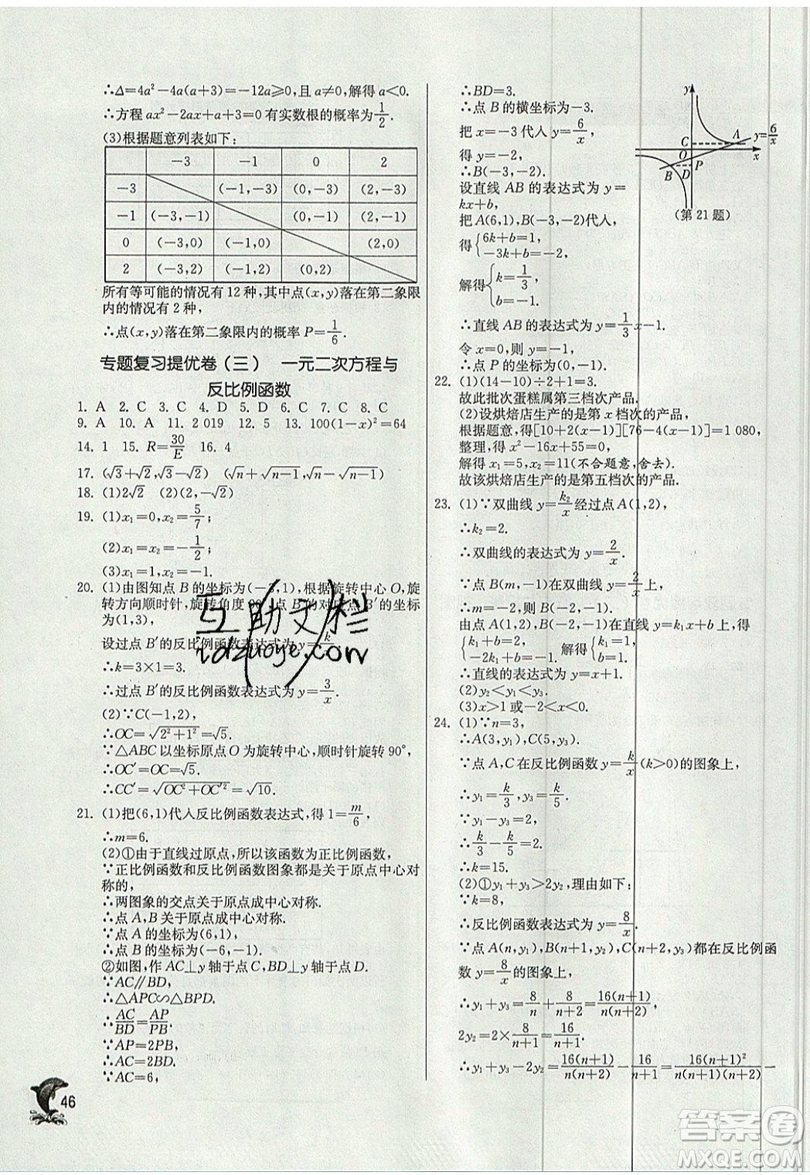 ∴Δ=4a²-4a(a+3)=-12a≥0,且 a≠0,解得 a<0.
∴方程 ax²-2ax+a+3=0 有实数根的概率为 1/2.
(3)根据题意列表如下:
-3 -1 0 2
-3 (-1,-3) (0,-3) (2,-3)
-1 (-3,-1) (0,-1) (2,-1)
0 (-3,0) (-1,0) (2,0)
2 (-3,2) (-1,2) (0,2)
所有等可能的情况有 12 种,其中点(x,y)落在第二象限内的情况有 2 种,
∴点(x,y)落在第二象限内的概率 P=1/6.
专题复习提优卷(三) 一元二次方程与
反比例函数
1. A 2. C 3. C 4. D 5. D 6. C 7. B 8. C
9. A 10. A 11. 2 019 12. 5 13. 100(1-x)²=64
14. 1 15. R=30/E 16. 4
17. (√3+√2) (√n+√n-1)(√n-√n-1)
18. (1)2√2 (2)2√2
19. (1)x₁=0,x₂=5/7;
(2)x₁=3,x₂=-1/2;
(3)x₁=x₂=1.
20. (1)由图知点 B 的坐标为(-3,1),根据旋转中心 O,旋
转方向顺时针,旋转角度 90°,点 B 的对应点 B′的坐标
为(1,3),
设过点 B′的反比例函数表达式为 y=k/x,
∴k=3×1=3.
∴过点 B′的反比例函数表达式为 y=3/x.
(2)∵C(-1,2),
∴OC=√2²+1²=√5.
∵△ABC 以坐标原点 O 为旋转中心,顺时针旋转 90°,
∴OC′=OC=√5.
∴CC′=√OC²+OC′²=√10.
21. (1)把(6,1)代人反比例函数表达式,得 1=m/6,
∴m=6.
(2)①由于直线过原点,所以该函数为正比例函数.
∵正比例函数和反比例函数图象都是关于原点中心对
称的,
∴两图象的交点关于原点成中心对称.
∴点 A,B 关于原点成中心对称.
∵点 A 的坐标为(6,1),
∴点 B 的坐标为(-6,-1).
②如图,作 AC⊥y 轴于点 C,BD⊥y 轴于点 D.
∵AC∥BD,
∴△APC∽△BPD.
∴AC/BD=AP/PB.
∵AP=2PB,
∴AC=2BD.
∵AC=6,
∴BD=3.
∴点 B 的横坐标为-3.
把 x=-3 代人 y=6/x,
得 y=-2.
∴B(-3,-2).
设直线 AB 的表达式为 y=
kx+b,
把 A(6,1),B(-3,-2)代人,
得{6k+b=1,
-3k+b=-2.
解得{k=1/3,
b=-1.
∴直线 AB 的表达式为 y=1/3x-1.
令 x=0,解得 y=-1.
∴点 P 的坐标为(0,-1).
y
C
A
y=6/x
O
x
B
D
P
(第 21 题)
22. (1)(14-10)÷2+1=3.
故此批次蛋糕属第三档次产品.
(2)设烘焙店生产的是第 x 档次的产品,
根据题意,得[10+2(x-1)][76-4(x-1)]=1 080,
整理,得 x²-16x+55=0.
解得 x₁=5,x₂=11(不合题意,舍去).
故该烘焙店生产的是第五档次的产品.
23. (1)∵双曲线 y=k₂/x经过点 A(1,2),
∴k₂=2.
∴双曲线的表达式为 y=2/x.
∵点 B(m,-1)在双曲线 y=2/x上,
∴m=-2,则 B(-2,-1).
由点 A(1,2),B(-2,-1)在直线 y=k₁x+b 上,
得{k₁+b=2,
-2k₁+b=-1. 解得{k₁=1,
b=1.
∴直线的表达式为 y=x+1.
(2)y₂<y₁<y₃.
(3)x>1 或-2<x<0.
24. (1)∵n=3,
∴A(3,y₁),C(5,y₃).
∵点 A,C 在反比例函数 y=k/x(k>0)的图象上,
∴y₁=k/3,y₃=k/5.
∵y₁-y₃=2,
∴k/3-k/5=2.
∴k=15.
(2)①y₁+y₃>2y₂,理由如下:
∵k=8,
∴反比例函数表达式为 y=8/x.
∵点 A(n,y₁),B(n+1,y₂),C(n+2,y₃)都在反比例函
数 y=8/x 的图象上,
∴y₁+y₃=8/n+8/(n+2)=16(n+1)/n(n+2),
2y₂=2×8/(n+1)=16/(n+1).
∴y₁+y₃-2y₂=16(n+1)/n(n+2)-16/(n+1)=16(n+1)²/n(n+1)(n+2)-
46
互助文档
idzuoye.com
答案圈
MXQE.COM